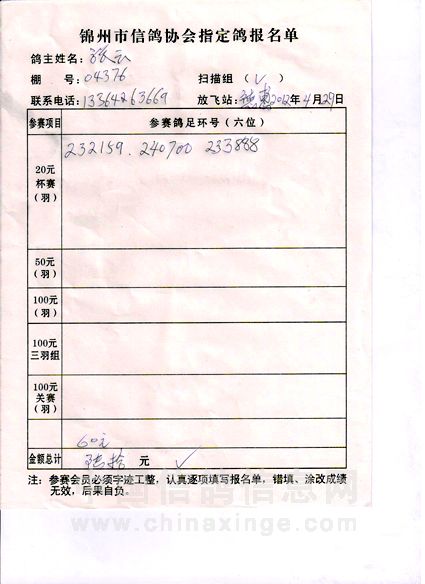 锦州市信鸽协会指定鸽报名单
鸽主姓名：张云
棚 号：04376 扫描组（√）
联系电话：13364263669 放飞站： 2012年4月29日
参赛项目 参赛鸽足环号（六位）
20元
杯赛
（羽）
232159. 240700 233888
50元
（羽）
100元
（羽）
100元
三羽组
100元
关赛
（羽）
60元
金额总计 陆拾 元 √
注：参赛会员必须字迹工整，认真逐项填写报名单，错填、涂改成绩
无效，后果自负。
中国信鸽信息网
www.chinaxinge.com